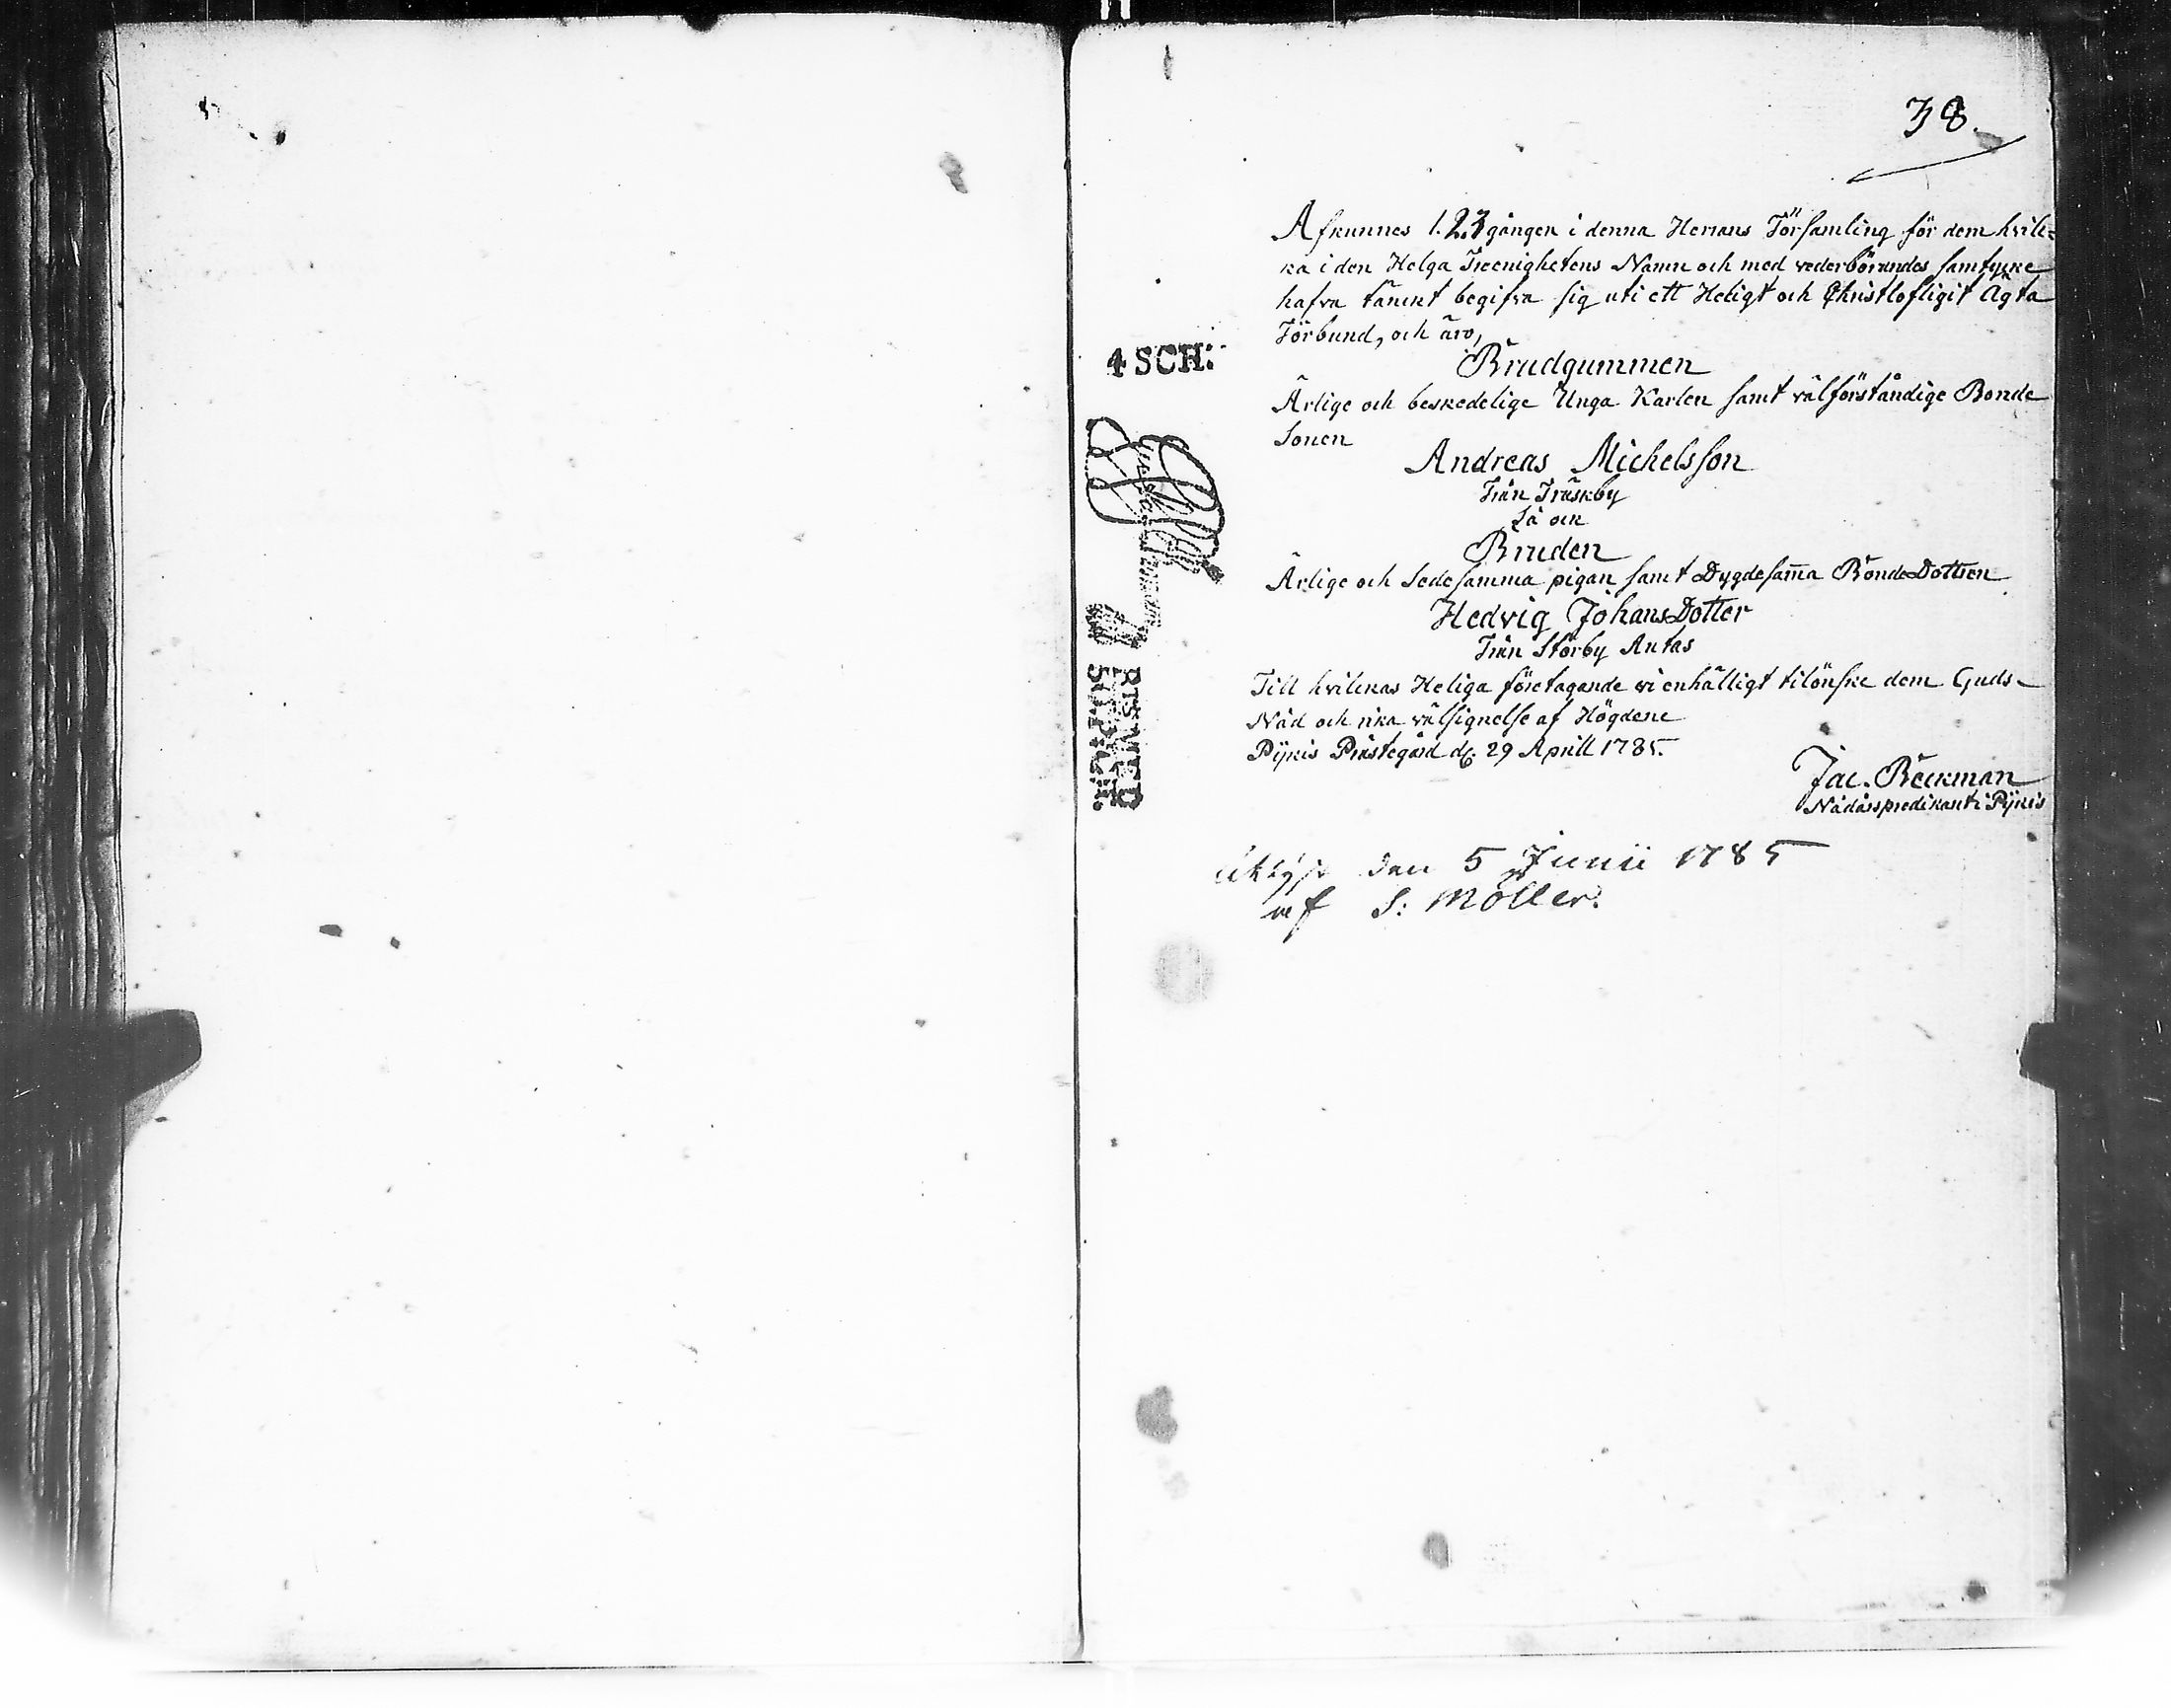 38.
Afkunnes 1.2.3 gången i denna Herrans Församling för dem hvil=
ka i den Helga Treenighetens Namn och med vederbörandes samtycke
hafva tänckt begifva sig uti ett Heligt och Christlofligit Ägta
Förbund, och äro,
Brudgummen
Ärlige och beskedelige Unga Karlen samt välförståndige Bonde
Sonen
Andreas Michelsson
Från Träskby
Så ock
Bruden
Ärlige och Sedesamma pigan samt Dygdesam̃a BondeDottren
Hedvig JohansDotter
Från Storby Antas
Till hvilckas Heliga företagande vi enhälligt tilönske dem Guds
Nåd och rika välsignelse af Högdene
Pijkis Prästegård d. 29 Aprill 1785.
Jac. Beckman
Nådårspredikant i Pijkis
den 5 Junii 1785
af S: Möller.
4 SCH:
RTS MED
SILFMT.